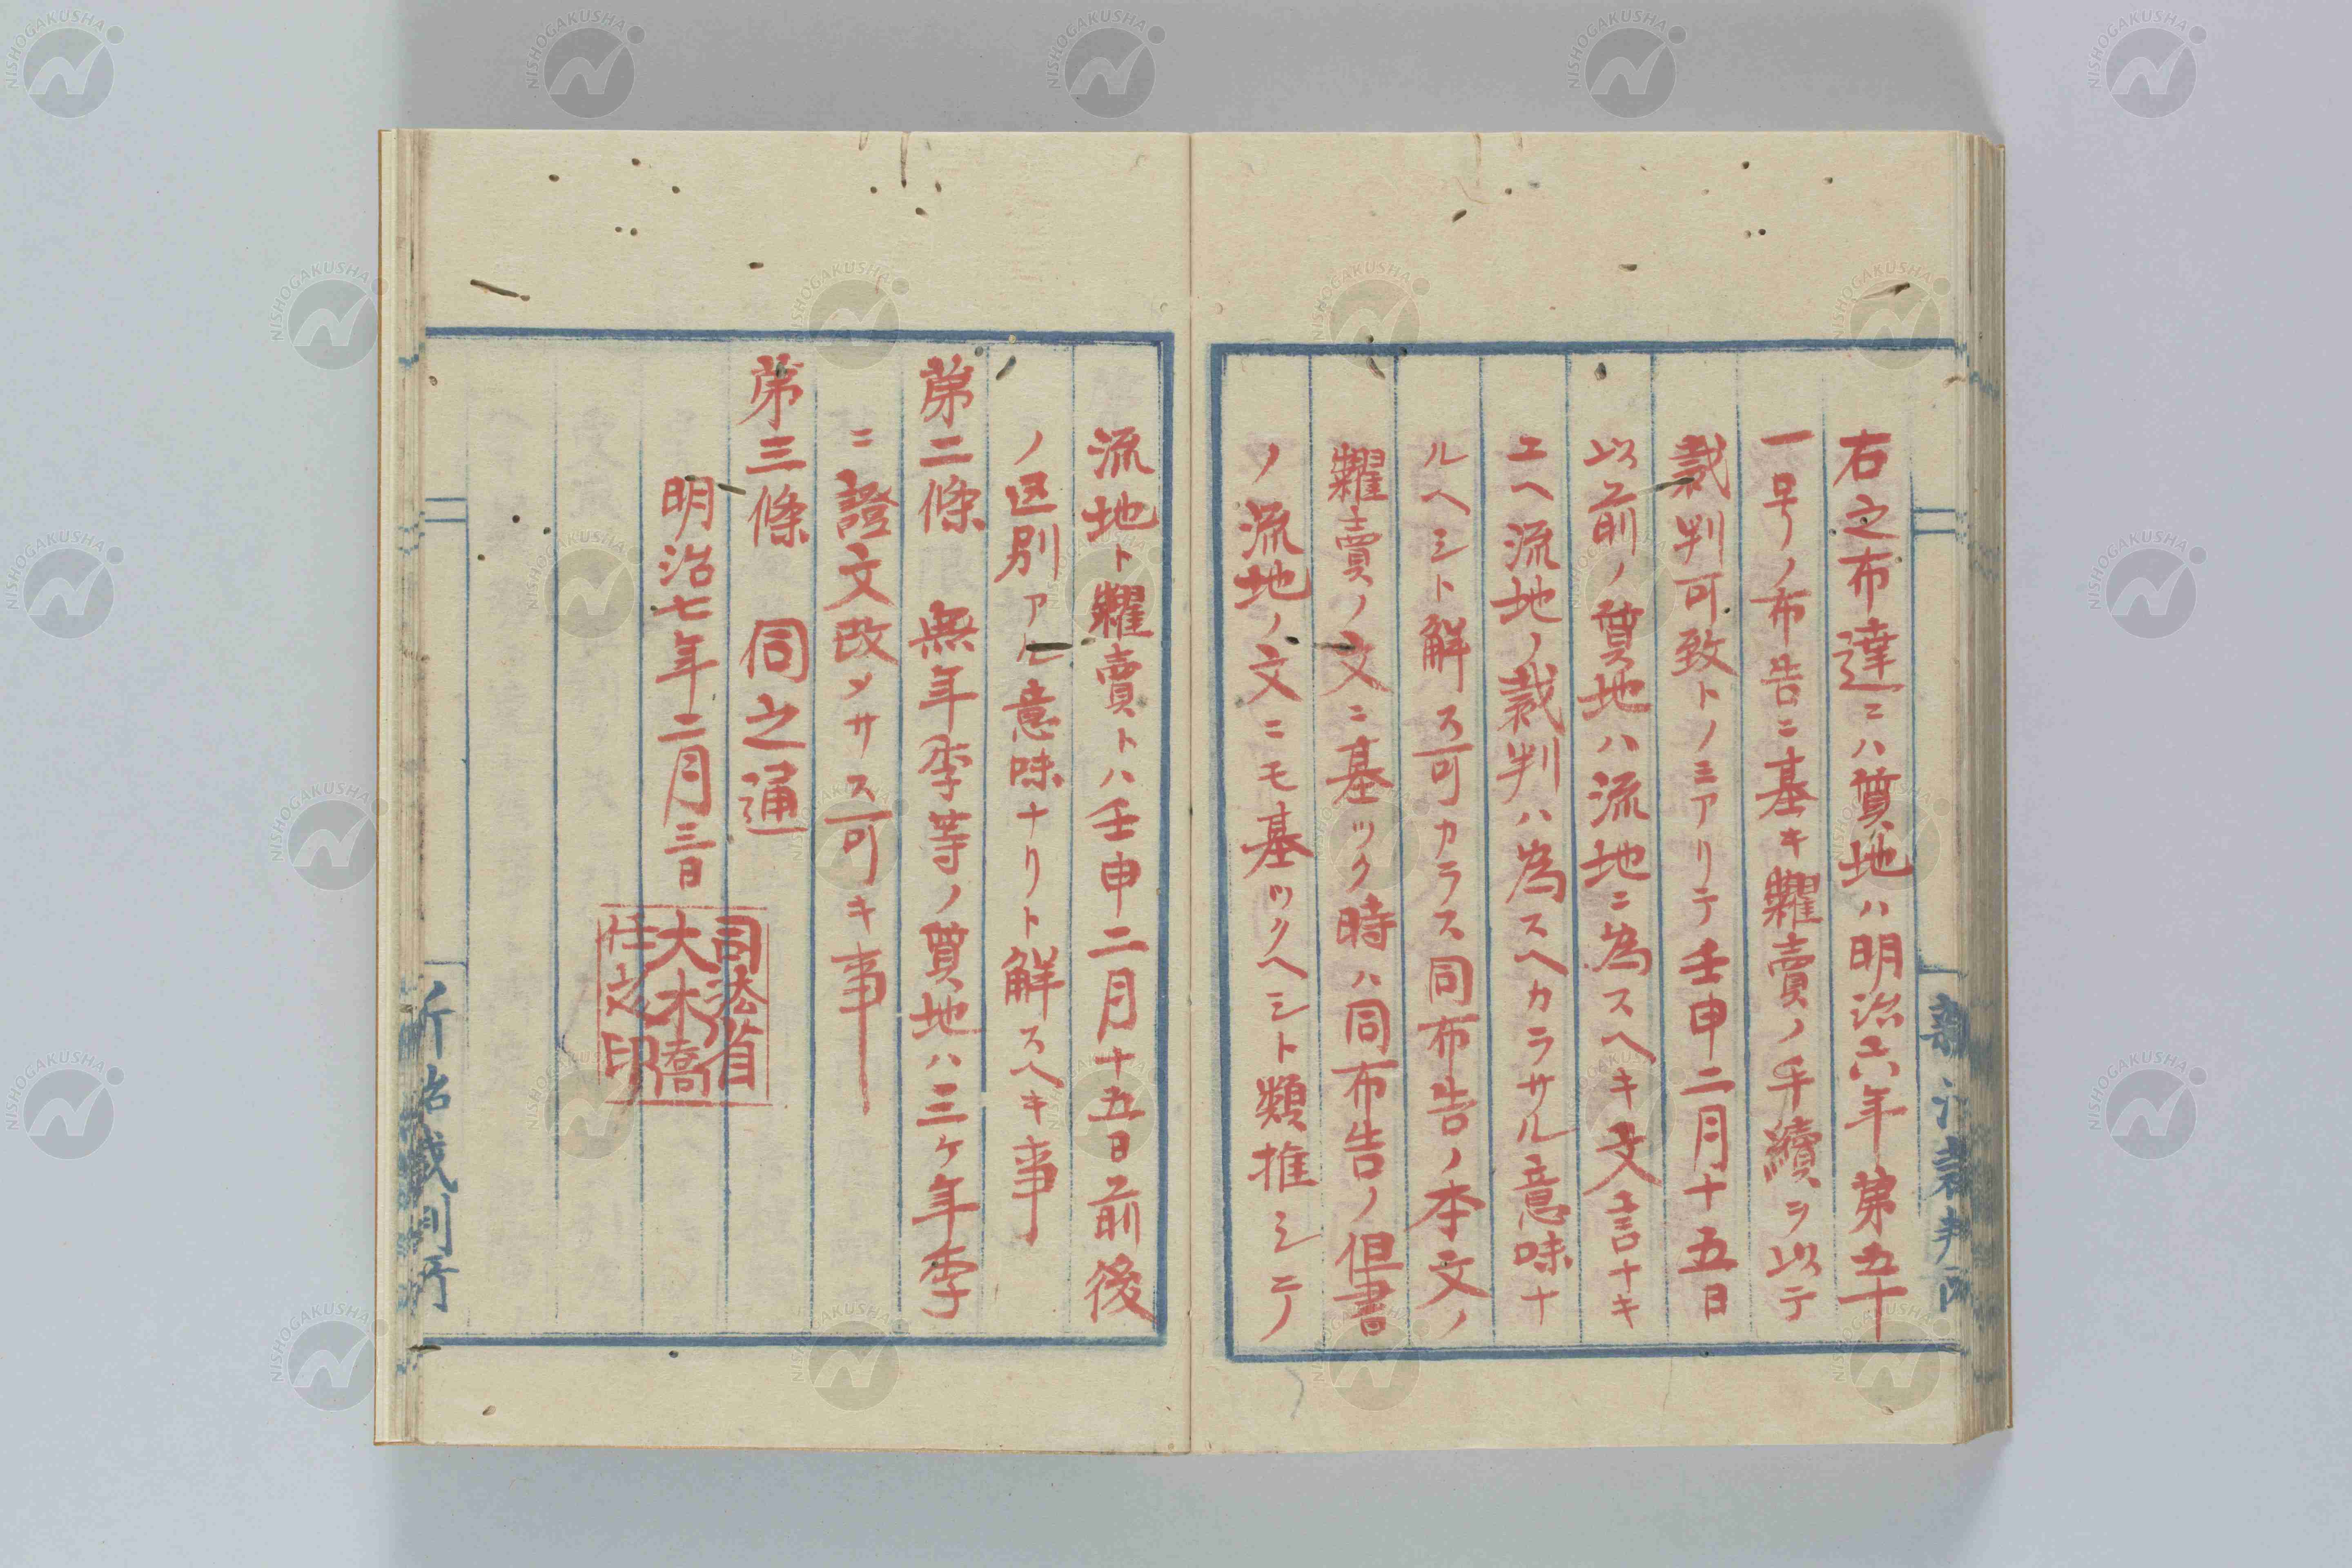 右之布達ニハ質地ハ明治六年第五十
一号ノ布告ニ基キ糶賣ノ手續ヲ以テ
裁判可致トノミアリテ壬申二月十五日
以前ノ質地ハ流地ニ為スヘキ文言ナキ
ユヘ流地ノ裁判ハ為スヘカラサル意味ナ
ルヘシト解ス可カラス同布告ノ本文ノ
糶賣ノ文ニ基ツク時ハ同布告ノ但書
ノ流地ノ文ニモ基ツクヘシト類推シテ
流地ト糶賣トハ壬申二月十五日前後
ノ区別アル意味ナリト解スヘキ事
第二條 無年季等ノ質地ハ三ケ年季
ニ證文改メサス可キ事
第三條 同之通
明治七年二月三日
司法省
大木喬
任之印
新治裁判所
新治裁判所
NISHOGAKUSHA